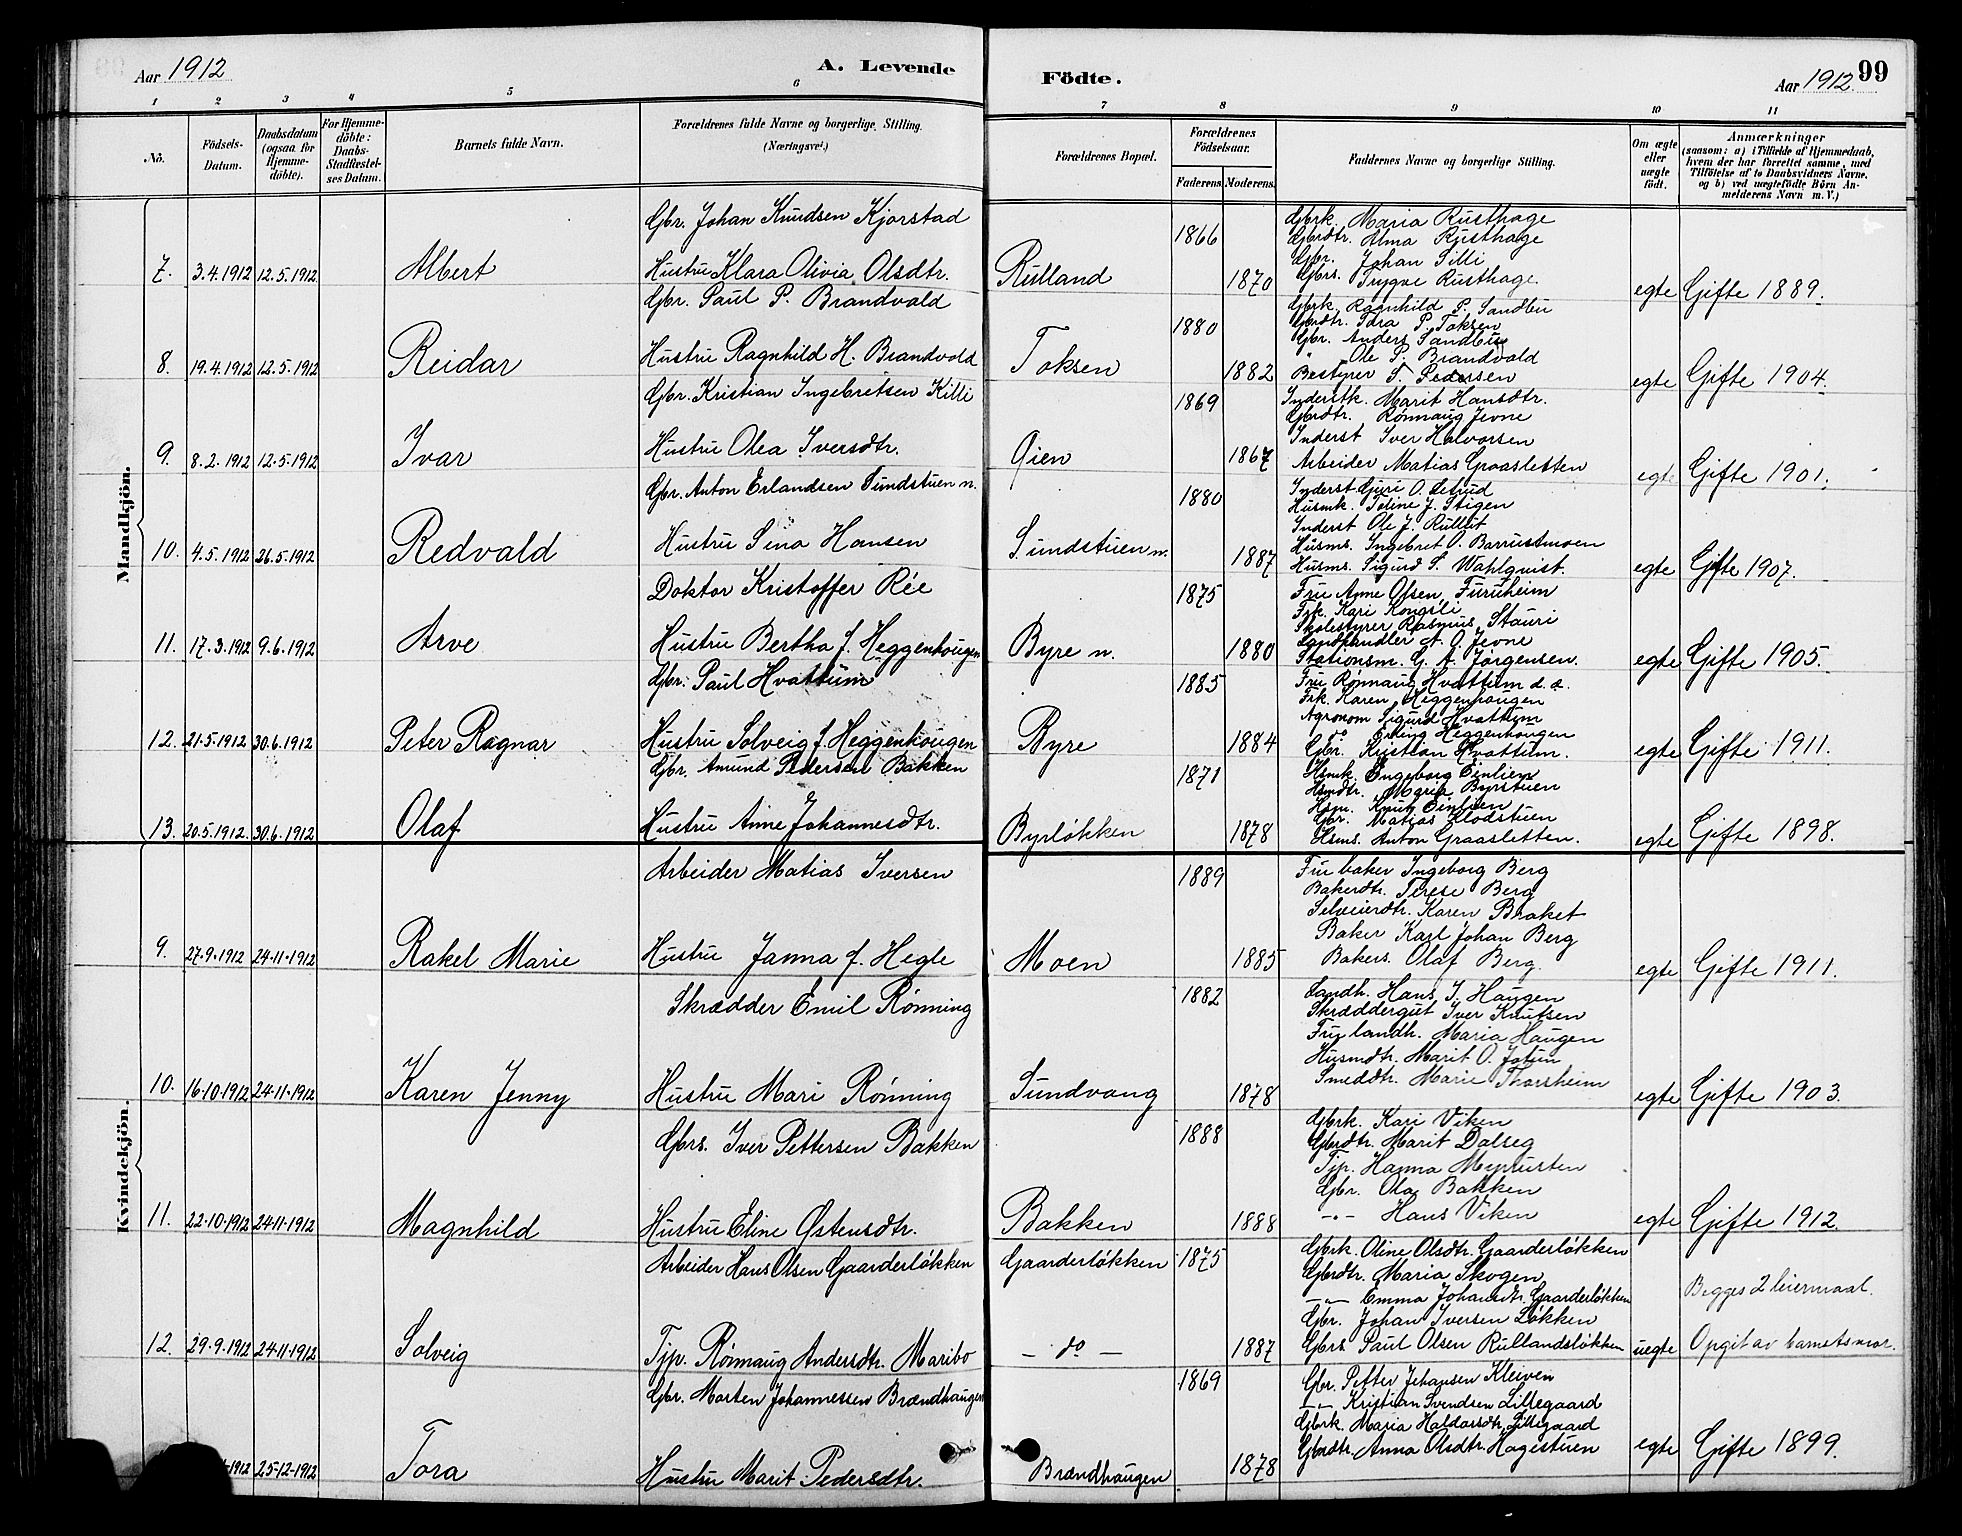 Aar 1912
A. Levende Födte.
Aar 1912. 99
1 2 3 4 5 6 7 8 9 10 11
Nô.
Födsels-Datum.
Daabsdatum (ogsaa for Hjemme-döbte).
For Hjemme-döbte: Daabs-Stadfæstel-ses Datum.
Barnets fulde Navn.
Forældrenes fulde Navne og borgerlige Stilling.
(Næringsvei.)
Forældrenes Bopæl.
Forældrenes Födselsaar.
Faderens. Moderens.
Faddernes Navne og borgerlige Stilling.
Om ægte eller uægte födt.
Anmærkninger
(saasom: a) i Tilfælde af Hjemmedaab,
hvem der har forrettet samme, med
Tilföielse af to Daabsvidners Navne,
og b) ved uægtefödte Börn An-
melderens Navn m. V.)
Mandkjön.
Gbr. Johan Knudsen Kjorstad
1866
Gbrk. Maria Rusthage
Gbrdtr. Alma Rusthage
Gbr. Johan Silli
7. 3.4.1912 12.5.1912 Albert Hustru Klara Olivia Olsdtr. Rulland 1870 Gbrs. Trygve Rusthage. egte Gifte 1889.
Gbr. Paul P. Brandvold
1880
Gbrk. Ragnhild P. Sandbu
Gbrdtr. Tora P. Toksen
Gbr. Anders Sandbu
" Ole P. Brandvold
8. 19.4.1912 12.5.1912 Reidar Hustru Ragnhild H. Brandvold Toksen 1882 Bestyrer T. Pedersen egte Gifte 1904.
Gbr. Kristian Ingebretsen Killi
1869
Inderstk. Marit Hansdtr.
Gbrdtr. Rønnaug Jevne
Inderst Iver Halvorsen
9. 8.2.1912 12.5.1912 Ivar Hustru Olea Iversdtr. Øien 1867 Arbeider Matias Graasletten egte Gifte 1901.
Gbr. Anton Erlandsen Sundstuen n.
1880
Inderst Guri O.
Husmk. Teline J. Stigen
Inderst Ole J. Rullut
Husms. Ingebret O. Barrustmoen
10. 4.5.1912 26.5.1912 Redvald Hustru Sina Hansen Sundstuen n. 1887 Husms. Sigurd S. Wahlquist. egte Gifte 1907.
Doktor Kristoffer Rée
1875
Fru Anne Olsen, Furuheim
Frk. Kari Kongsli
Skolestyrer Rasmus Stauri
Landhandler A. O. Jevne
11. 17.3.1912 9.6.1912 Arve Hustru Bertha f. Heggenhougen Byre n. 1880 Stationsm. G. A. Jørgensen. egte Gifte 1905.
Gbr. Paul Hvattum
1885
Fru Rønnaug Hvattum d. æ.
Frk. Karen Heggenhougen
Agronom Sigurd Hvattum
Do Erling Heggenhougen
12. 21.5.1912 30.6.1912 Peter Ragnar Hustru Solveig f. Heggenhougen Byre 1884 Gbr. Kristian Hvattum. egte Gifte 1911.
Gbr. Amund Pedersen Bakken
1871
Hsmk. Engeborg Einlien
Hsmdtr. Maria Byrstuen
Hsm. Knut Einlien
Gbr. Matias Klodstuen
13. 20.5.1912. 30.6.1912 Olaf Hustru Anne Johannesdtr. Byrløkken 1878 Hsms. Anton Graasletten. egte Gifte 1898.
Kvindekjön.
Arbeider Matias Iversen
1889
Fru baker Ingeborg Berg
Bakerdtr. Terese Berg
Selveierdtr. Karen Braket
Baker Karl Johan Berg
9. 27.9.1912 24.11.1912 Rakel Marie Hustru Janna f. Hegle Moen 1885 Bakers. Olaf Berg. egte Gifte 1911.
Skrædder Emil Rønning
1882
Landh. Hans J. Haugen
Skræddergut Iver Knutsen
Fru landh. Maria Haugen
Husmdtr. Marit O. Jotun
10. 16.10.1912 24.11.1912 Karen Jenny Hustru Mari Rønning Sundvang 1878 Smeddtr. Marie Thorsheim egte Gifte 1903.
Gbrs. Iver Pettersen Bakken
1888
Gbrk. Kari Viken
Gbrdtr. Marit Dalseg
Tjp. Hanna Myrusten
Gbr. Ola Bakken
11. 22.10.1912 24.11.1912 Magnhild Hustru Eline Østensdtr. Bakken 1888 -"- Hans Viken egte Gifte 1912.
Arbeider Hans Olsen Gaarderløkken Gaarderløkken 1875
Gbrk. Oline Olsdtr. Gaarderløkken
Gbrdtr. Maria Skogen
-"- Emma Johansdtr. Gaarderløkken
Begges 2 leiermaal.
Gbr. Johan Iversen Løkken
12. 29.9.1912 24.11.1912 Solveig Tjp. Rønnaug Andersdtr. Maribo - do - 1887 Gbrs. Paul Olsen Rullandsløkken uegte Opgit av barnets mor.
Gbr. Morten Johannessen Brændhaugen
1869
Gbr. Petter Johansen Kleiven
-"- Kristian Svendsen Lillegaard
Gbrk. Maria Haldorsdtr. Lillegaard
1912 25-12-1912 Tora Hustru Marit Pedersdtr. Brændhaugen 1878 Gbrdtr. Anna Olsdtr. Hagestuen egte Gifte 1899.